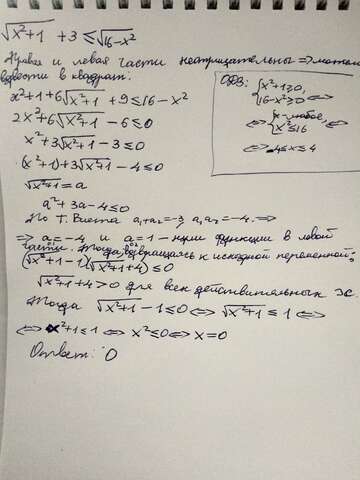 √x²+1 + 3 ≤ √16-x²
Правая и левая части неотрицательны => можем
возвести в квадрат:
x²+1+6√x²+1 +9 ≤ 16-x²
2x²+6√x²+1 -6 ≤ 0
x²+3√x²+1 -3 ≤ 0
(x²+1)+3√x²+1 -4 ≤ 0
√x²+1 = a
a²+3a-4 ≤ 0
По Т. Виета a₁+a₂=-3, a₁a₂=-4. =>
=> a=-4 и a=1 - нули функции в левой
части. Тогда, возвращаясь к исходной переменной:
(√x²+1 -1)(√x²+1 +4) ≤ 0
√x²+1 +4>0 для всех действительных x
Тогда √x²+1 -1 ≤ 0 <=> √x²+1 ≤ 1 <=>
<=> x²+1 ≤ 1 <=> x² ≤ 0 <=> x=0
Ответ: 0
ОДЗ: {x²+1 ≥ 0,
16-x² ≥ 0 <=>
<=> {x - любое,
x² ≤ 16
<=> -4 ≤ x ≤ 4